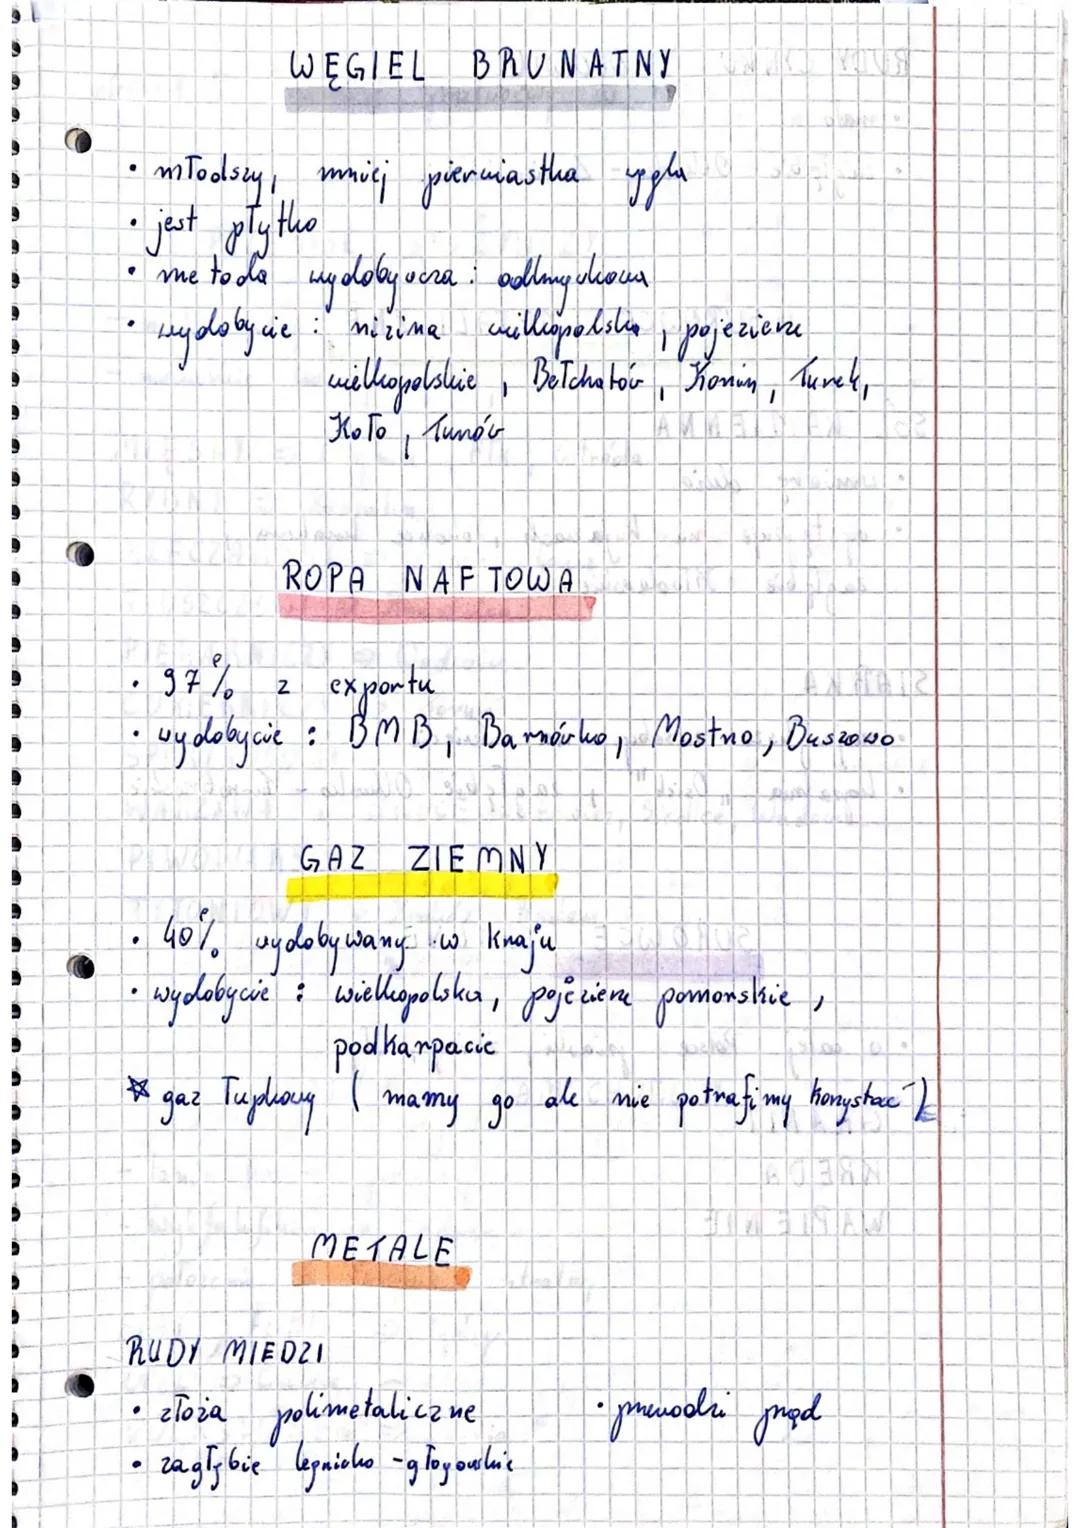 WĘGIEL BRUNATNY
• młodszy, mniej pierwiastka węgla
• jest płytko
• metoda wydobywcza: odkrywkowa
• wydobycie: nizina wielkopolska, pojezierze
wielkopolskie, Bełchatów, Konin, Turek,
Koło, Turów
ROPA NAFTOWA
• 97% z exportu
• wydobycie: BMB, Barnówko, Mostno, Buszewo
GAZ ZIEMNY
• 40% wydobywany w kraju
• wydobycie: wielkopolska, pojezierze pomorskie,
podkarpacie
* gaz łupkowy (mamy go ale nie potrafimy korzystać)
METALE
RUDY MIEDZI
• złoża polimetaliczne • przewodzi prąd
• zagłębie legnicko-głogowskie